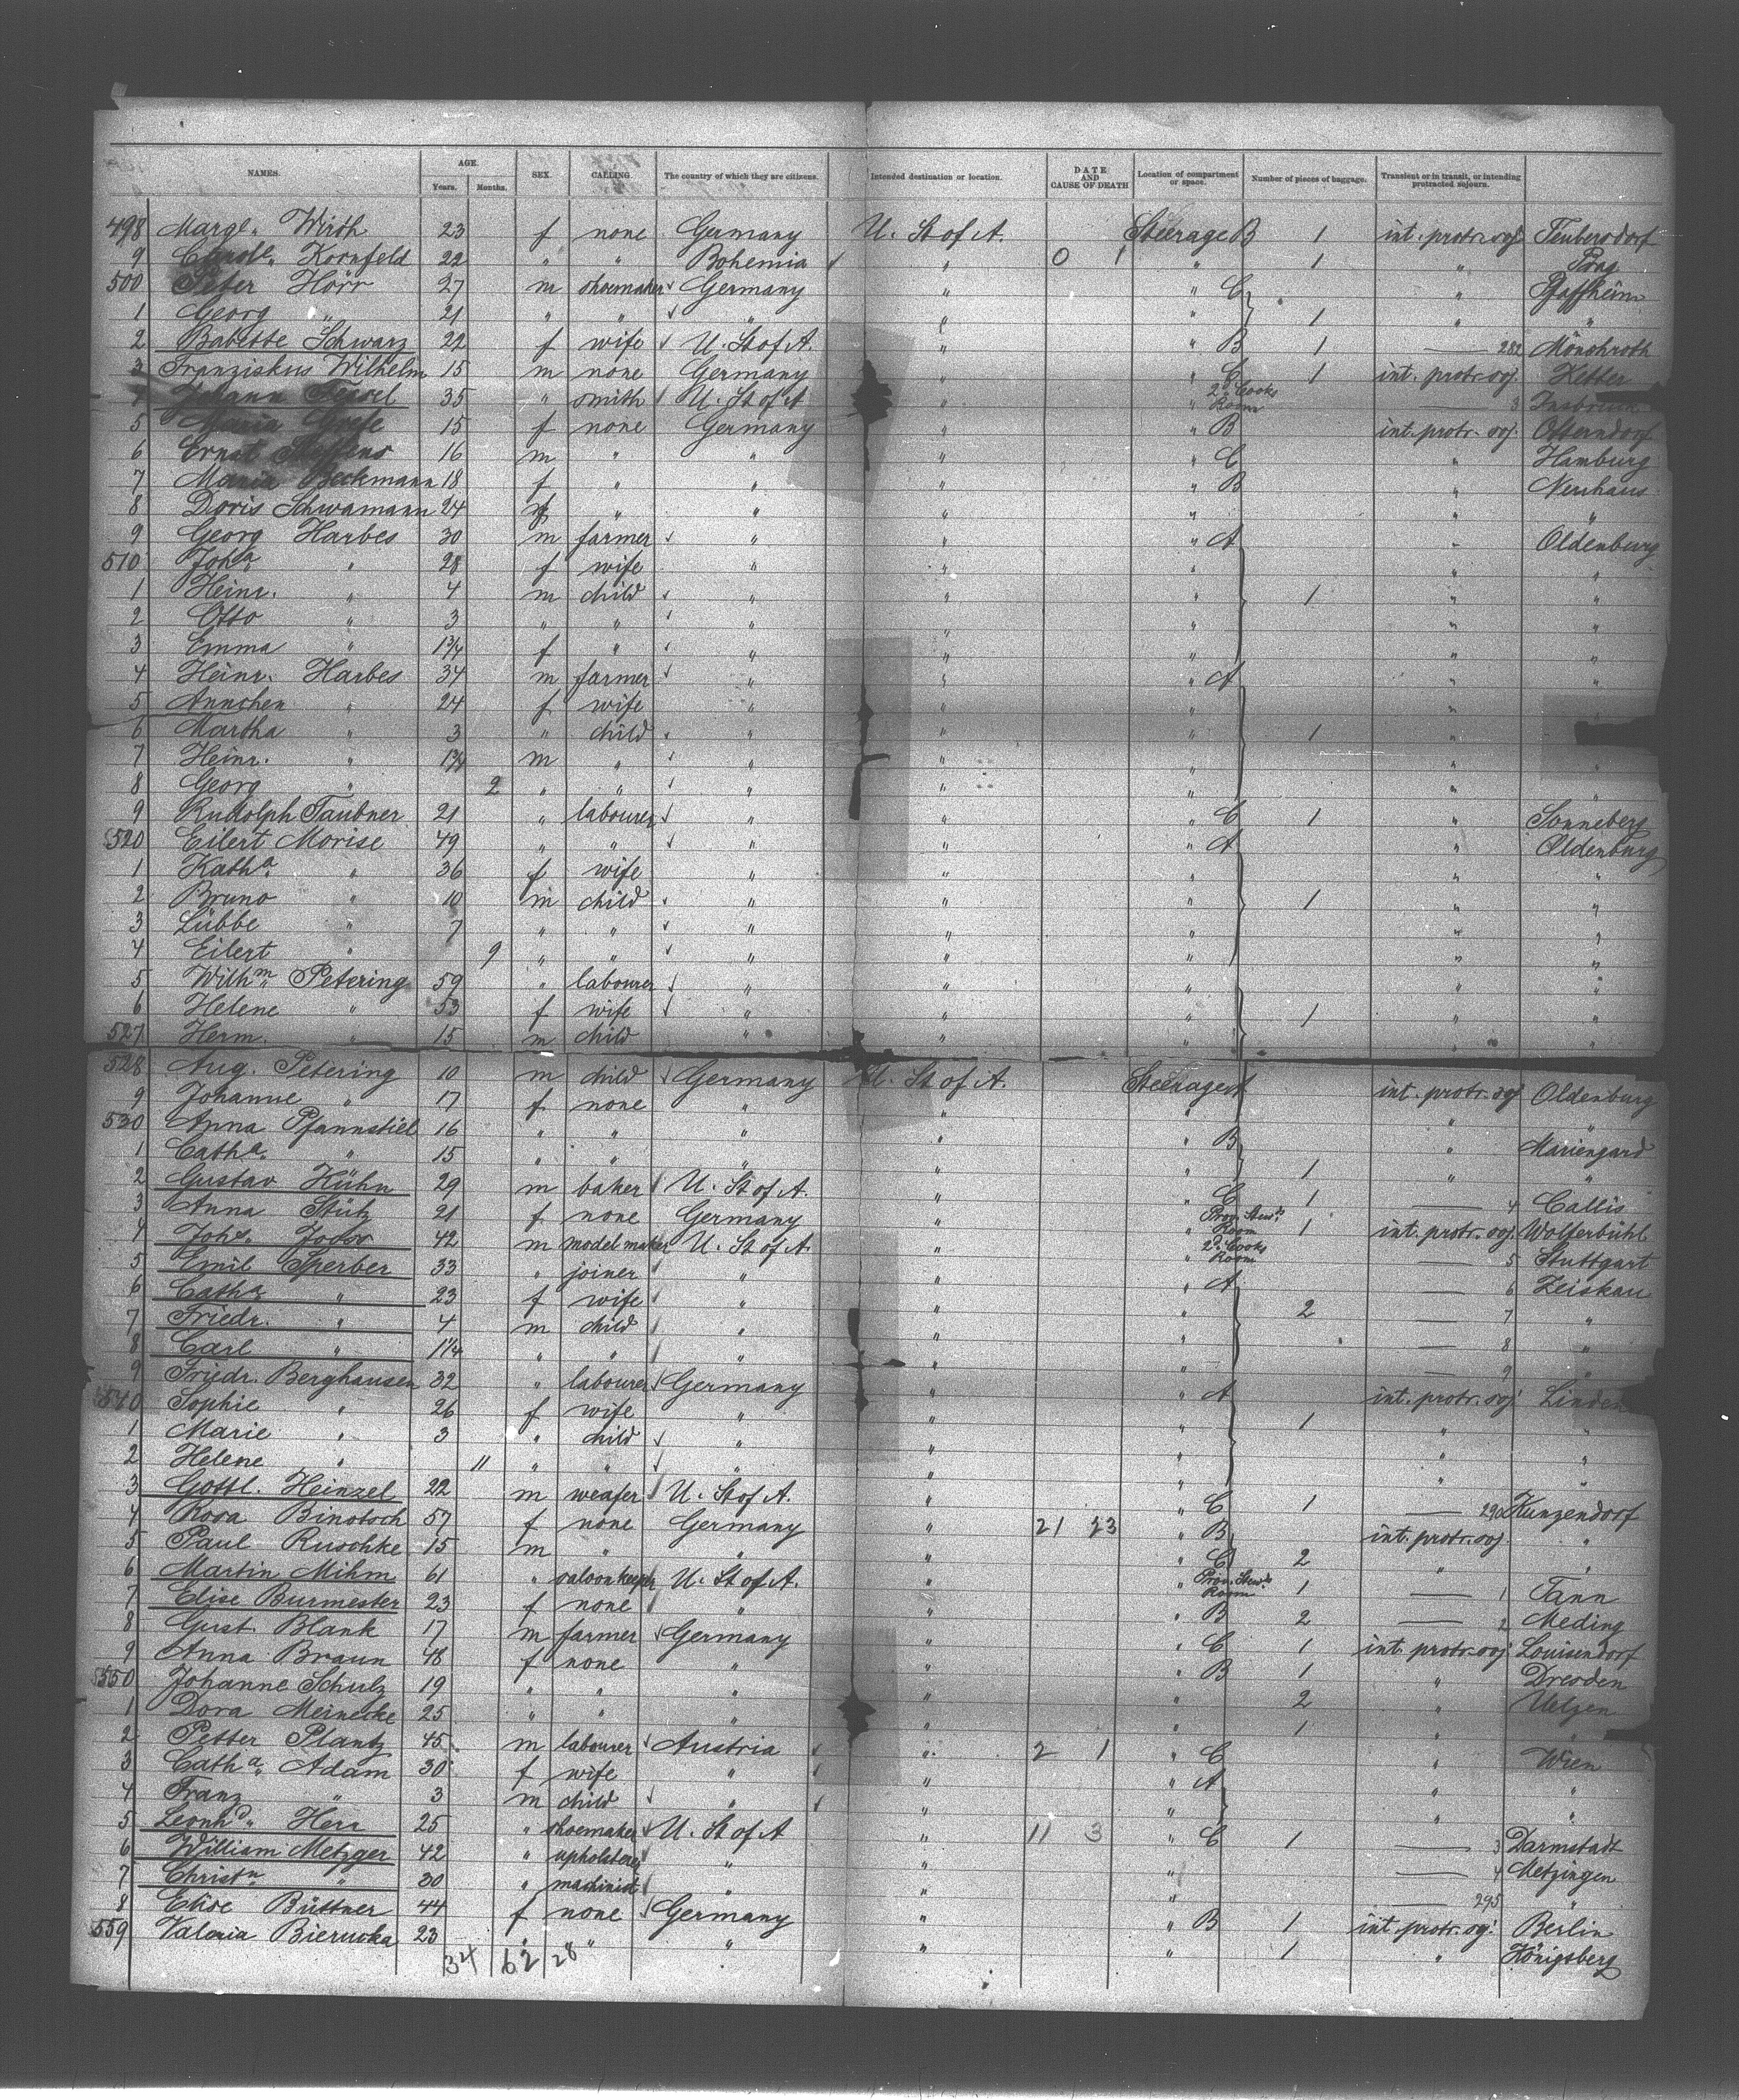 NAMES. AGE. Years. Months. SEX. CALLING. The country of which they are citizens. Intended destination or location. DATE AND CAUSE OF DEATH Location of compartment or space. Number of pieces of baggage. Transient or in transit, or intending protracted sojourn.
498 Margt. Wirth 23 f none Germany U. St of A. Steerage B 1 int. protr. soj. Teubersdorf
9 Kornfeld 22 " " Bohemia " 0 1 " 1 " Prag
500 Peter Hörr 27 m shoemaker Germany " " C " Pfaffheim
1 Georg " 21 " " " " " 1 " "
2 Babette Schwarz 22 f wife U. St of A. " " B 1 — 282 Mönchroth
3 Franziskus Wilhelm 15 m none Germany " " C 1 int. protr. soj. Hetter
4 Johann 35 " smith U. St of A " " 2d Cooks Room — 3
5 Maria Grefe 15 f none Germany " " B int. protr. soj. Osterndorf
6 Ernst Steffens 16 m " " " " C " Hamburg
7 Maria Beckmann 18 f " " " " B " Neuhaus
8 Doris Schwamann 24 f " " " " " "
9 Georg Harbes 30 m farmer " " " A " Oldenburg
510 Joha " 28 f wife " " " " "
1 Heinr. " 4 m child " " " 1 " "
2 Otto " 3 " " " " " " "
3 Emma " 1¾ f " " " " " "
4 Heinr. Harbes 34 m farmer " " " A " "
5 Annchen " 24 f wife " " " " "
6 Martha " 3 " child " " " 1 "
7 Heinr. " 1¾ m " " " " " "
8 Georg " 2 " " " " " " "
9 Rudolph Taubner 21 " labourer " " " C 1 " Sonneberg
520 Eilert Morise 49 " " " " " A " Oldenburg
1 Katha " 36 f wife " " " " "
2 Bruno " 10 m child " " " 1 " "
3 Lübbe " 7 " " " " " " "
4 Eilert " 9 " " " " " " "
5 Wilhm Petering 59 " labourer " " " " "
6 Helene " 53 f wife " " " 1 " "
527 Herm. " 15 m child " " " " "
528 Aug. Petering 10 m child Germany U. St of A. Steerage A int. protr. soj Oldenburg
9 Johanne " 17 f none " " " " "
530 Anna Pfannstiel 16 " " " " " B " Mariengard
1 Catha " 15 " " " " " 1 " "
2 Gustav Kühn 29 m baker U. St of A. " " C 1 — 4 Callis
3 Anna Stütz 21 f none Germany " " Prov. Stew's Room 1 int. protr. soj. Wolferbühl
4 Johs. Jodor 42 m model maker U. St of A. " " 2d Cooks Room — 5 Stuttgart
5 Emil Sperber 33 " joiner " " " A — 6 Zeiskau
6 Catha " 23 f wife " " " 2 — 7 "
7 Friedr. " 4 m child " " " — 8 "
8 Carl " 1¼ " " " " " — 9 "
9 Friedr. Berghausen 32 " labourer Germany " " A int. protr. soj Linden
540 Sophie " 26 f wife " " " 1 " "
1 Marie " 3 " child " " " " "
2 Helene " 11 " " " " " " "
3 Gottl. Heinzel 22 m weafer U. St of A. " " C 1 — 290 Kunzendorf
4 Rosa Binotoch 57 f none Germany " 21 23 " B int. protr. soj. "
5 Paul Ruschke 15 m " " " " C 2 " "
6 Martin Mihm 61 " saloonkeeper U. St of A. " " Prov. Stew's Room 1 — 1 Tann
7 Elise Burmester 23 f none " " " B 2 — 2 Meding
8 Gust. Blank 17 m farmer Germany " " C 1 int. protr. soj. Louisendorf
9 Anna Braun 48 f none " " " B 1 " Dresden
550 Johanne Schulz 19 " " " " " 2 " Uelzen
1 Dora Meinecke 25 " " " " " 1 " "
2 Petter Plantz 45 m labourer Austria " 2 1 " C " Wien
3 Catha Adam 30 f wife " " " A " "
4 Franz " 3 m child " " " " "
5 Leonhd. Herr 25 " shoemaker U. St of A " 11 3 " C 1 — 3 Darmstadt
6 William Metzger 42 " upholsterer " " " — 4 Metzingen
7 Christn " 30 " machinist " " " — 295 "
8 Elise Büttner 44 f none Germany " " B 1 int. protr. soj. Berlin
559 Valeria Bieruoka 23 " " " " " 1 " Königsberg
34 62 28